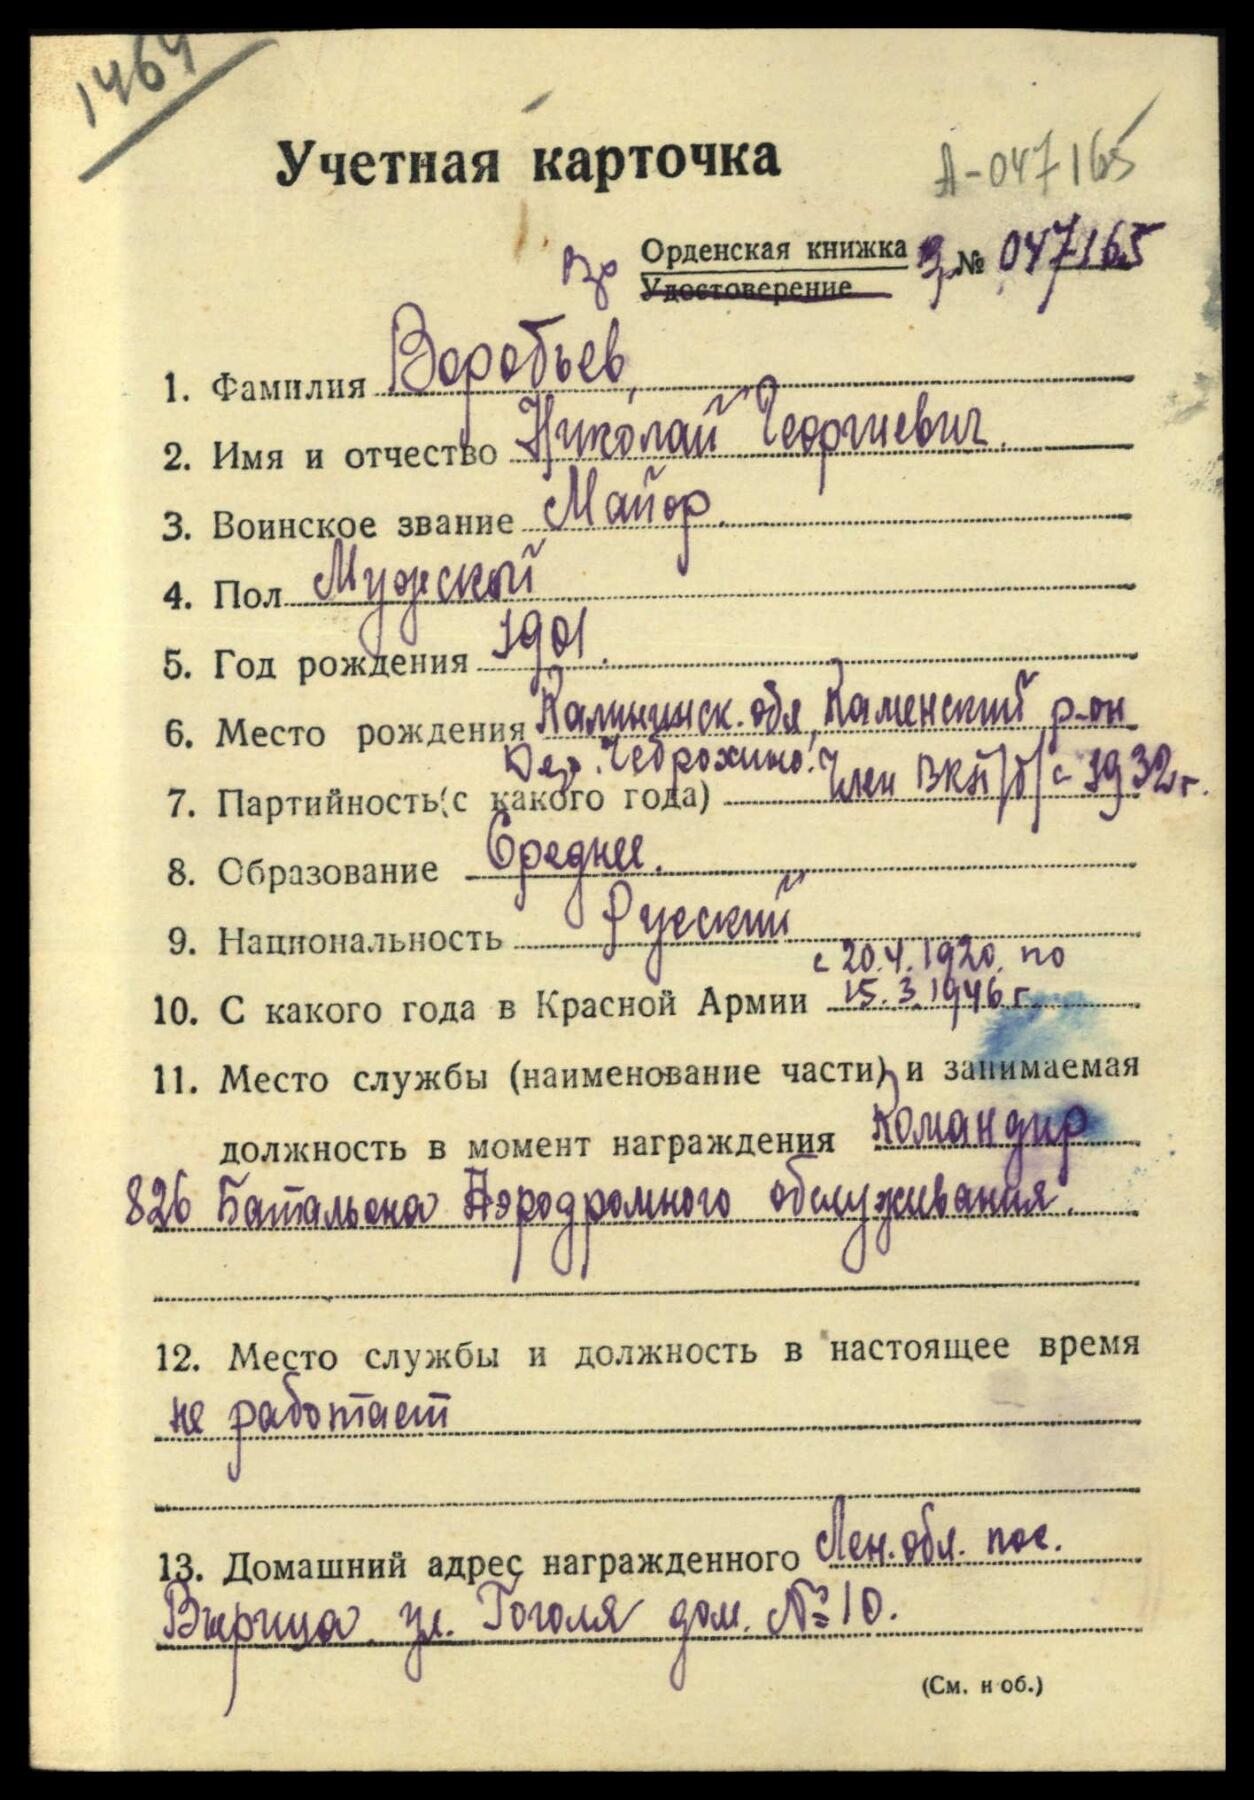 1464
Учетная карточка
А-047165
Орденская книжка № 047165
Удостоверение
1. Фамилия Воробьев
2. Имя и отчество Николай Георгиевич.
3. Воинское звание Майор.
4. Пол Мужской
5. Год рождения 1901.
6. Место рождения Калининск. обл, Каменский р-он
Дер. Чеброхино.
7. Партийность (с какого года) Член ВКП/б/ с 1932 г.
8. Образование Среднее.
9. Национальность Русский
с 20.4.1920. по
10. С какого года в Красной Армии 15.3.1946 г.
11. Место службы (наименование части) и занимаемая
должность в момент награждения Командир
826 Батальона Аэродромного обслуживания.
12. Место службы и должность в настоящее время
не работает
13. Домашний адрес награжденного Лен. обл. пос.
Вырица ул. Гоголя дом. № 10.
(См. н об.)